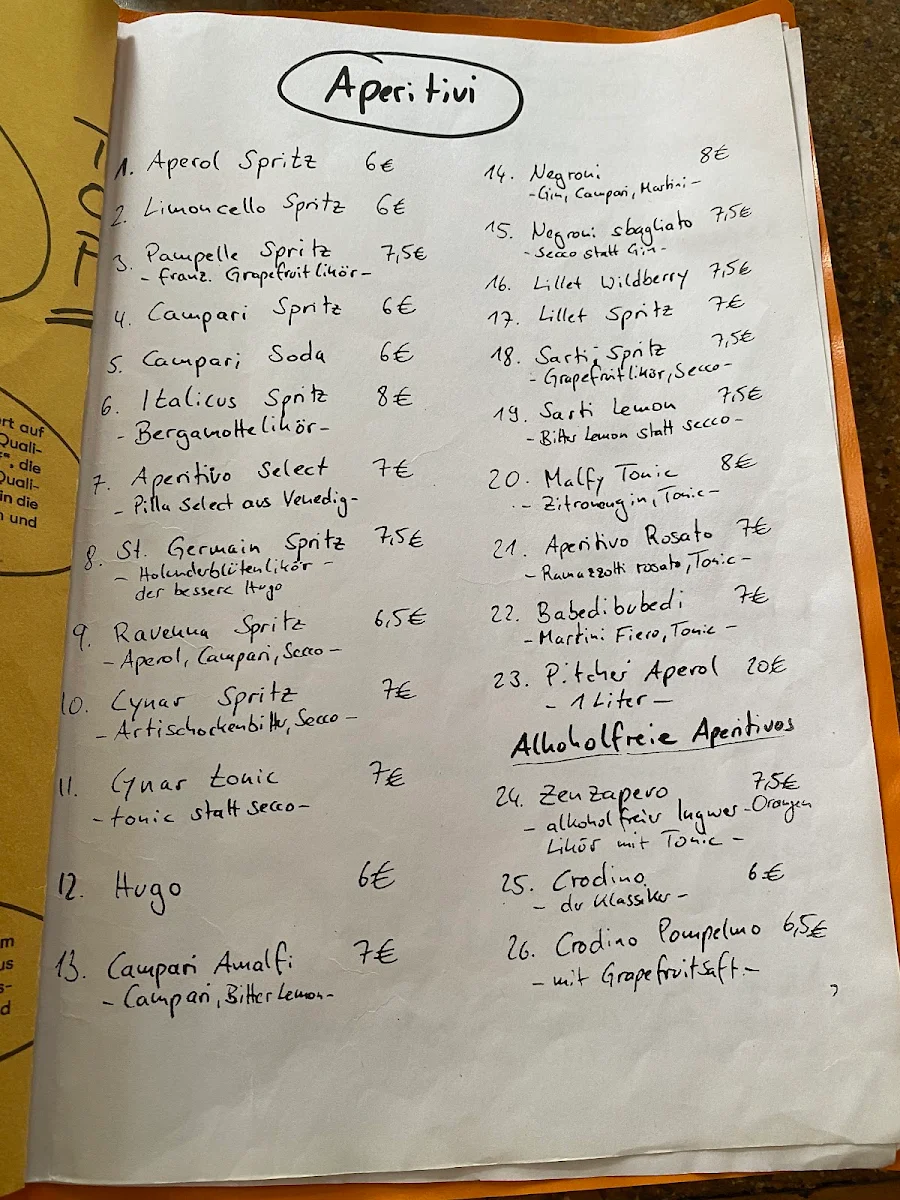 Aperitivi
1. Aperol Spritz 6€
2. Limoncello Spritz 6€
3. Pampelle Spritz 7,5€
- franz. Grapefruitlikör -
4. Campari Spritz 6€
5. Campari Soda 6€
6. Italicus Spritz 8€
- Bergamottelikör -
7. Aperitivo Select 7€
- Pilla Select aus Venedig -
8. St. Germain Spritz 7,5€
- Holunderblütenlikör -
der bessere Hugo
9. Ravenna Spritz 6,5€
- Aperol, Campari, Secco -
10. Cynar Spritz 7€
- Artischockenbitter, Secco -
11. Cynar tonic 7€
- tonic statt secco -
12. Hugo 6€
13. Campari Amalfi 7€
- Campari, Bitter Lemon -
14. Negroni 8€
- Gin, Campari, Martini -
15. Negroni sbagliato 7,5€
- Secco statt Gin -
16. Lillet Wildberry 7,5€
17. Lillet Spritz 7€
18. Sarti Spritz 7,5€
- Grapefruitlikör, Secco -
19. Sarti Lemon 7,5€
- Bitter Lemon statt secco -
20. Malfy Tonic 8€
- Zitronengin, Tonic -
21. Aperitivo Rosato 7€
- Ramazzotti rosato, Tonic -
22. Babedibubedi 7€
- Martini Fiero, Tonic -
23. Pitcher Aperol 20€
- 1 Liter -
Alkoholfreie Aperitivos
24. Zenzapero 7,5€
- alkoholfreier Ingwer-Orangen
Likör mit Tonic -
25. Crodino 6€
- der Klassiker -
26. Crodino Pompelmo 6,5€
- mit Grapefruitsaft -
rt auf
Quali-
die
Quali-
in die
und